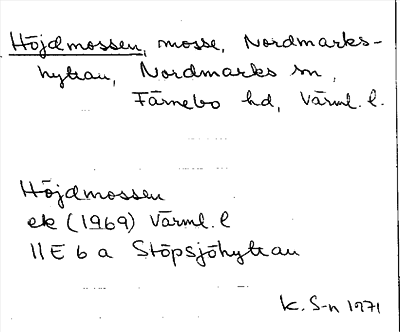 Höjdmossen, mosse, Nordmarks-
hyttan, Nordmarks sn,
Färnebo hd, Värml. l.
Höjdmossen
ek (1969) Värml. l
11E 6 a Stöpsjöhyttan
K. S-n 1971